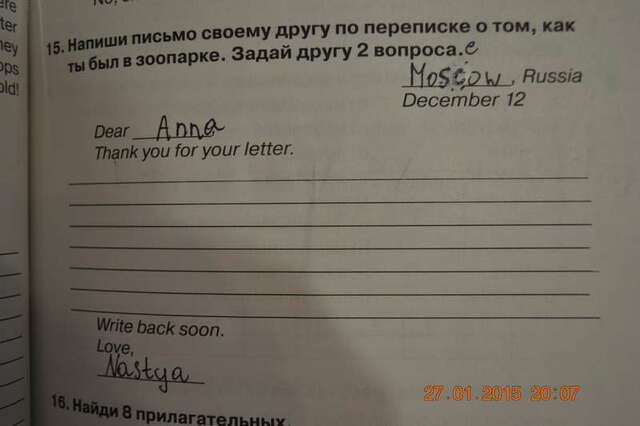 ere
ter
ney
ops
old!
15. Напиши письмо своему другу по переписке о том, как
ты был в зоопарке. Задай другу 2 вопроса. е
Moscow, Russia
December 12
Dear Anna
Thank you for your letter.
Write back soon.
Love,
Nastya
16. Найди 8 прилагательных.
27.01.2015 20:07